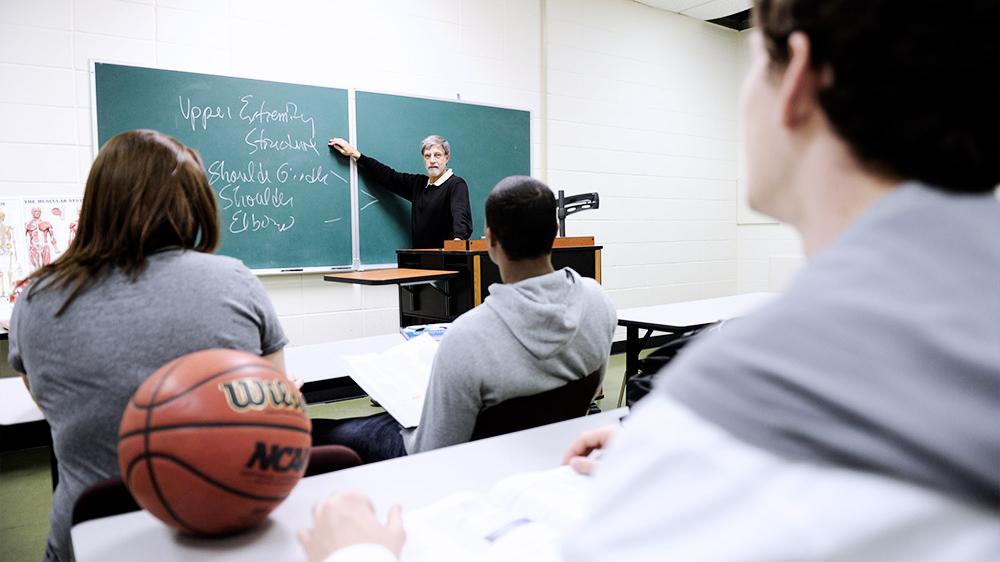 Upper Extremity
Structure
Shoulder Girdle
Shoulder
Elbow
THE MUSCULAR SYSTEM
Wilson
NCAA